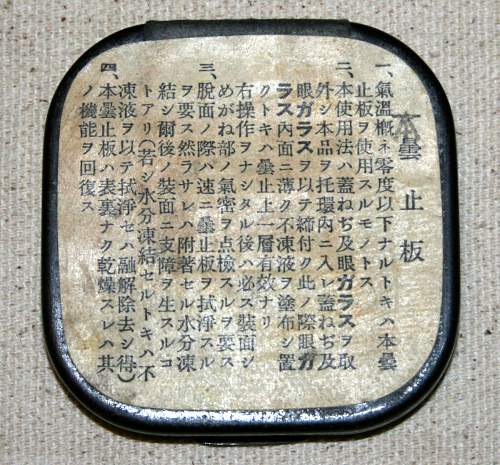 曇止板
一、氣溫槪ネ零度以下ナルトキハ本曇
止板ヲ使用スルモノトス
二、本使用法ハ蓋ねぢ及眼ガラスヲ取
外シ本品ヲ托環內ニ入レ蓋ねぢ及
眼ガラスヲ以テ締付ク此ノ際眼ガ
ラス內面ニ薄ク不凍液ヲ塗布シ置
クトキハ曇止上一層有效ナリ
右操作ヲナシタル後ハ必ス裝面シ
めがね部ノ氣密ヲ點檢スルヲ要ス
三、脫面ノ際ハ速ニ曇止板ヲ拭淨スル
ヲ要ス然ラサレハ附著セル水分凍
結シ爾後ノ裝面ニ支障ヲ生スルコ
トアリ(若シ水分凍結セルトキハ不
凍液ヲ以テ拭淨セハ融解除去シ得)
四、本曇止板ハ表裏ナク乾燥スレハ其
ノ機能ヲ回復ス